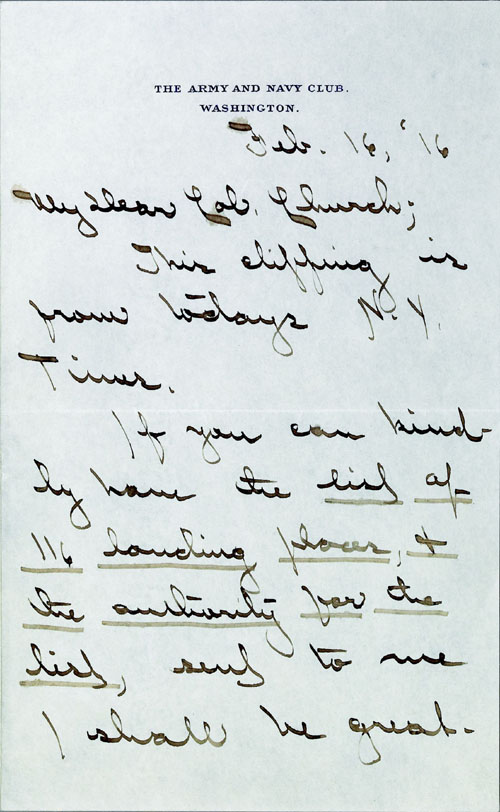 THE ARMY AND NAVY CLUB.
WASHINGTON.
Feb. 16, '16
My dear Col. Church;
This clipping is
from todays N. Y.
Times.
If you can kind-
ly have the list of
116 landing places, &
the authority for the
list, sent to me
I shall be great-